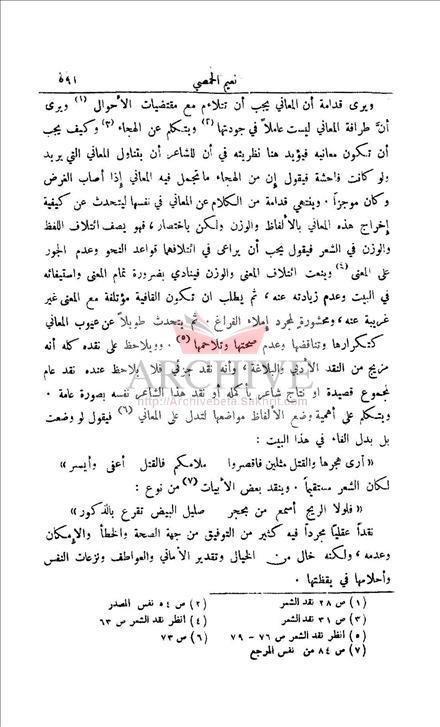 نعيم الحمصي ٥٩١
ويرى قدامة أن المعاني يجب أن تتلاءم مع مقتضيات الأحوال (١) ويرى
أنَّ طرافة المعاني ليست عاملاً في جودتها (٢) ويتكلم عن الهجاء (٣) وكيف يجب
أن تكون معانيه فيؤيد هنا نظريته في أن للشاعر أن يتناول المعاني التي يريد
ولو كانت فاحشة فيقول إن من الهجاء ما تجمل فيه المعاني إذا أصاب الغرض
وكان موجزاً . وينتهي قدامة من الكلام عن المعاني في نفسها ليتحدث عن كيفية
إخراج هذه المعاني بالألفاظ والوزن ولكن باختصار ، فهو يصف ائتلاف اللفظ
والوزن في الشعر فيقول يجب أن يراعى في ائتلافهما قواعد النحو وعدم الجور
على المعنى (٤) وينعت ائتلاف المعنى والوزن فينادي بضرورة تمام المعنى واستيفائه
في البيت وعدم زيادته عنه ، ثم يطلب ان تكون القافية مؤتلفة مع المعنى غير
غريبة عنه ، ومحشورة لمجرد إملاء الفراغ . ثم يتحدث طويلاً عن عيوب المعاني
كتكرارها وتناقضها وعدم صحتها وتلاحمها (٥) . وويلاحظ على نقده كله أنه
مزيج من النقد الأدبي والبلاغة ، وأنه نقد جزئي فلا يلاحظ عنده نقد عام
لمجموع قصيدة او نتاج شاعر بأكمله او نقد هذا الشاعر نفسه بصورة عامة .
ويتكلم على أهمية وضع الألفاظ مواضعها لتدل على المعاني (٦) فيقول لو وضعت
بل بدل الفاء في هذا البيت :
« أرى هجرها والقتل مثلين فاقصروا ملامكم فالقتل أعفى وأيسر »
لكان الشعر مستقيماً . وينقد بعض الأبيات (٧) من نوع :
« فلولا الريح أسمع من بحجر صليل البيض تقرع بالذكور »
نقداً عقلياً مجرداً فيه كثير من التوفيق من جهة الصحة والخطأ والإمكان
وعدمه ، ولكنه خال من الخيالي وتقدير الأماني والعواطف ونزعات النفس
وأحلامها في يقظتها .
(١) ص ٢٨ نقد الشعر (٢) ص ٥٤ نفس المصدر
(٣) ص ٣١ نقد الشعر (٤) انظر نقد الشعر ص ٦٣
(٥) انظر نقد الشعر ص ٧٦ - ٧٩ (٦) ص ٧٣
(٧) ص ٨٤ من نفس المرجع
ARCHIVE
http://Archivebeta.Sakhrit.com